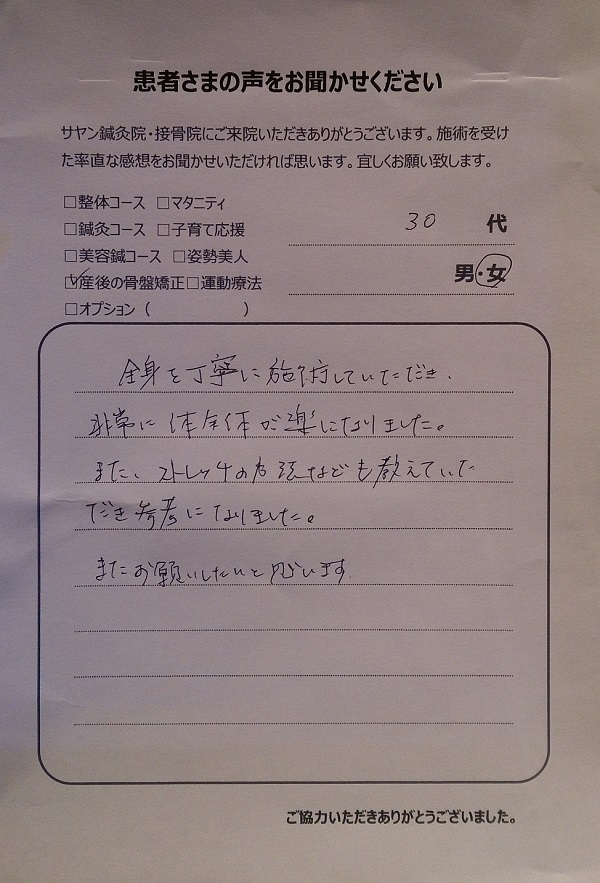 患者さまの声をお聞かせください
サヤン鍼灸院・接骨院にご来院いただきありがとうございます。施術を受け
た率直な感想をお聞かせいただければ思います。宜しくお願い致します。
□整体コース □マタニティ
□鍼灸コース □子育て応援
30 代
□美容鍼コース □姿勢美人
☑産後の骨盤矯正□運動療法
男・女
□オプション（ ）
全身を丁寧に施術していただき、
非常に体全体が楽になりました。
また、ストレッチの方法なども教えていた
だき参考になりました。
またお願いしたいと思います
ご協力いただきありがとうございました。